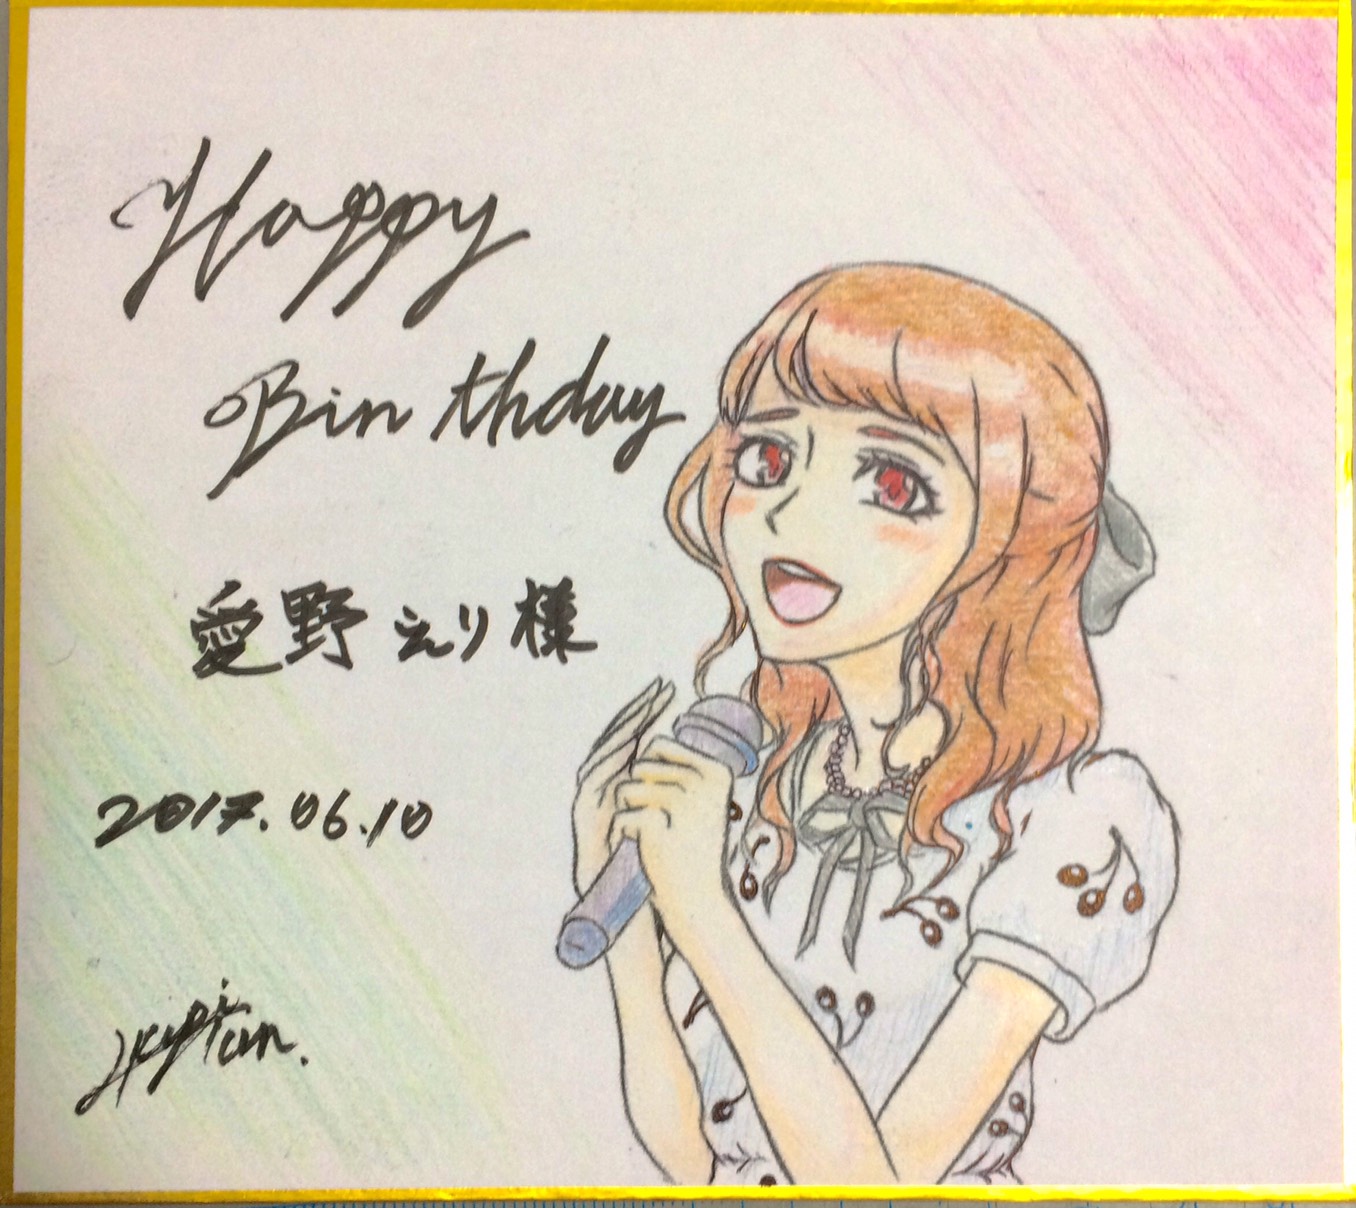 Happy
Birthday
愛野えり様
2017.06.10